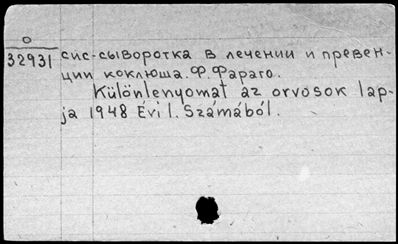 0
32931 сис-сыворотка в лечении и превен-
ции коклюша. Ф. Фараго.
Különlenyomat az orvosok lap-
ja 1948 Évi 1. Számából.